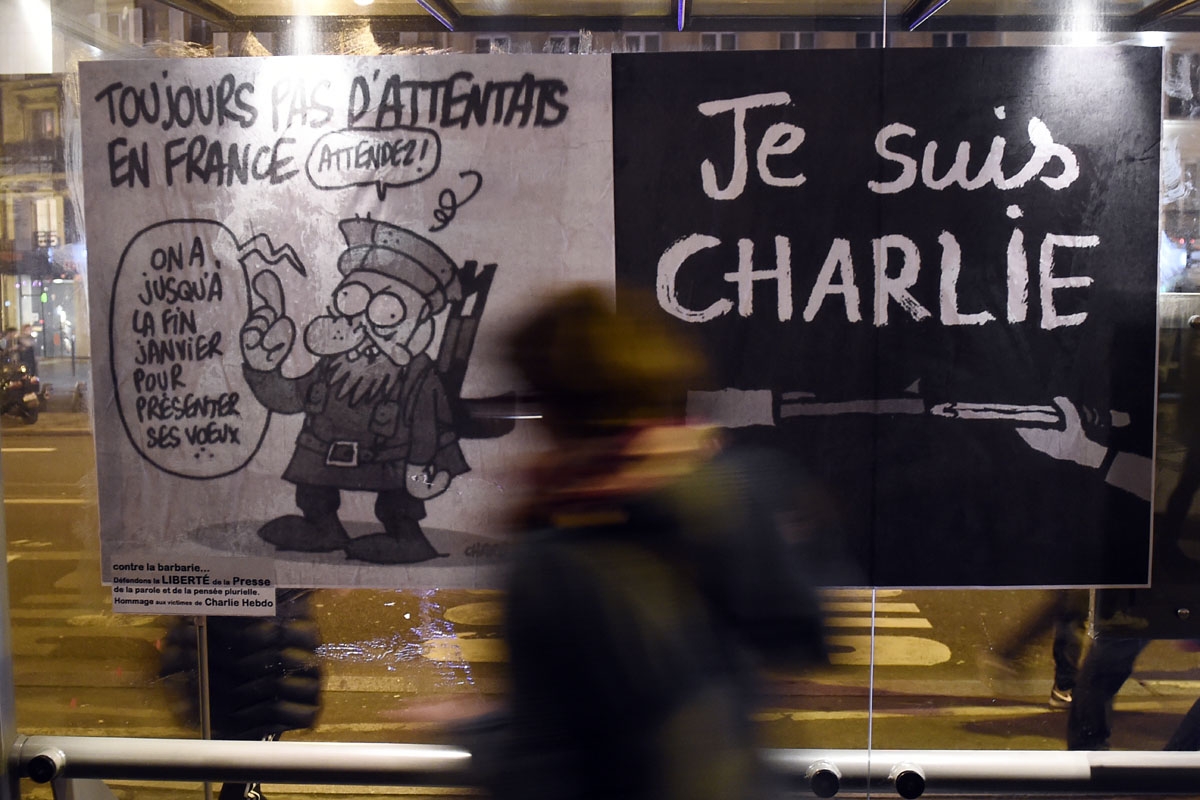 TOUJOURS PAS D'ATTENTATS
EN FRANCE
ATTENDEZ!
ON A
JUSQU'À
LA FIN
JANVIER
POUR
PRÉSENTER
SES VŒUX
...
contre la barbarie...
Défendons la LIBERTÉ de la Presse
de la parole et de la pensée plurielle.
Hommage aux victimes de Charlie Hebdo
Je suis
CHARLIE